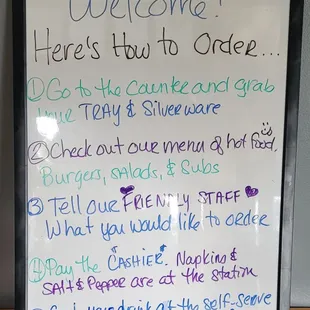 Welcome!
Here's How to Order...
① Go to the Counter and grab
your TRAY & Silverware
② Check out our menu of hot food,
Burgers, salads, & Subs
③ Tell our FRIENDLY STAFF
What you would like to order
④ Pay the CASHIER. Napkins &
SAlt & Pepper are at the Station
drink at the self-serve